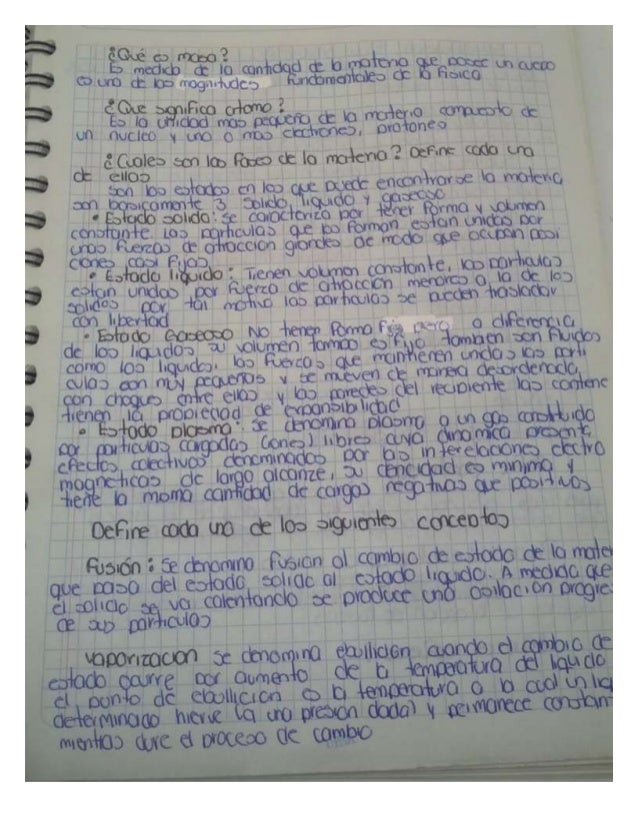 ¿Qué es masa?
Es medida de la cantidad de la materia que posee un cuerpo
es una de las magnitudes fundamentales de la fisica
¿Que significa atomo?
Es la unidad mas pequeña de la materia compuesto de
un nucleo y uno o mas electrones, protones
¿Cuales son las fases de la materia? Define cada una
de ellas
son los estados en los que puede encontrarse la materia
son basicamente 3 solido, liquido y gaseoso
• Estado solido: se caracteriza por tener forma y volumen
constante. Las particulas que los forman estan unidas por
unas fuerzas de atraccion grandes de modo que ocupan posi
ciones casi fijas
• Estado liquido: Tienen volumen constante, las particulas
estan unidas por fuerza de atraccion menores a la de los
solidos por tal motivo las particulas se pueden trasladar
con libertad
• Estado Gaseoso No tienen forma fija pero a diferencia
de los liquidos, su volumen tampoco es fijo tambien son fluidos
como los liquidos, las fuerzas que mantienen unidas las parti
culas son muy pequeñas y se mueven de manera desordenada,
con choques entre ellas y las paredes del recipiente las contiene
tienen la propiedad de expansibilidad
• Estado plasma: se denomina plasma a un gas constituido
por particulas cargadas (iones) libres cuya dinamica present
efectos colectivos denominados por las interelaciones electro
magneticas de largo alcanze, su dencidad es minima y
tiene la misma cantidad de cargas negativas que positivas
Define cada uno de los siguientes conceptos
Fusión: se denomina fusion al cambio de estado de la mate
que pasa del estado solido al estado liquido. A medida que
el solido se va calentando se produce una osilación progre
de sus particulas
vaporizacion se denomina ebullición cuando el cambio de
estado ocurre por aumento de la temperatura del liquido
el punto de ebullicion es la temperatura a la cual un liq
determinado hierve (a una presion dada) y permanece constan
mientras dure el proceso de cambio